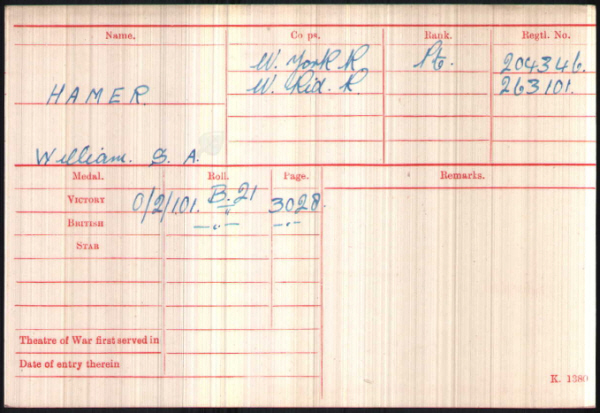 Name. Corps. Rank. Regtl. No.
W. York R. Pte. 204346.
HAMER. W. Rid. R. 263101.
William. S. A.
Medal. Roll. Page. Remarks.
VICTORY O/2/101. B.21 3028.
BRITISH —"— —"—
STAR
Theatre of War first served in
Date of entry therein
K. 1380